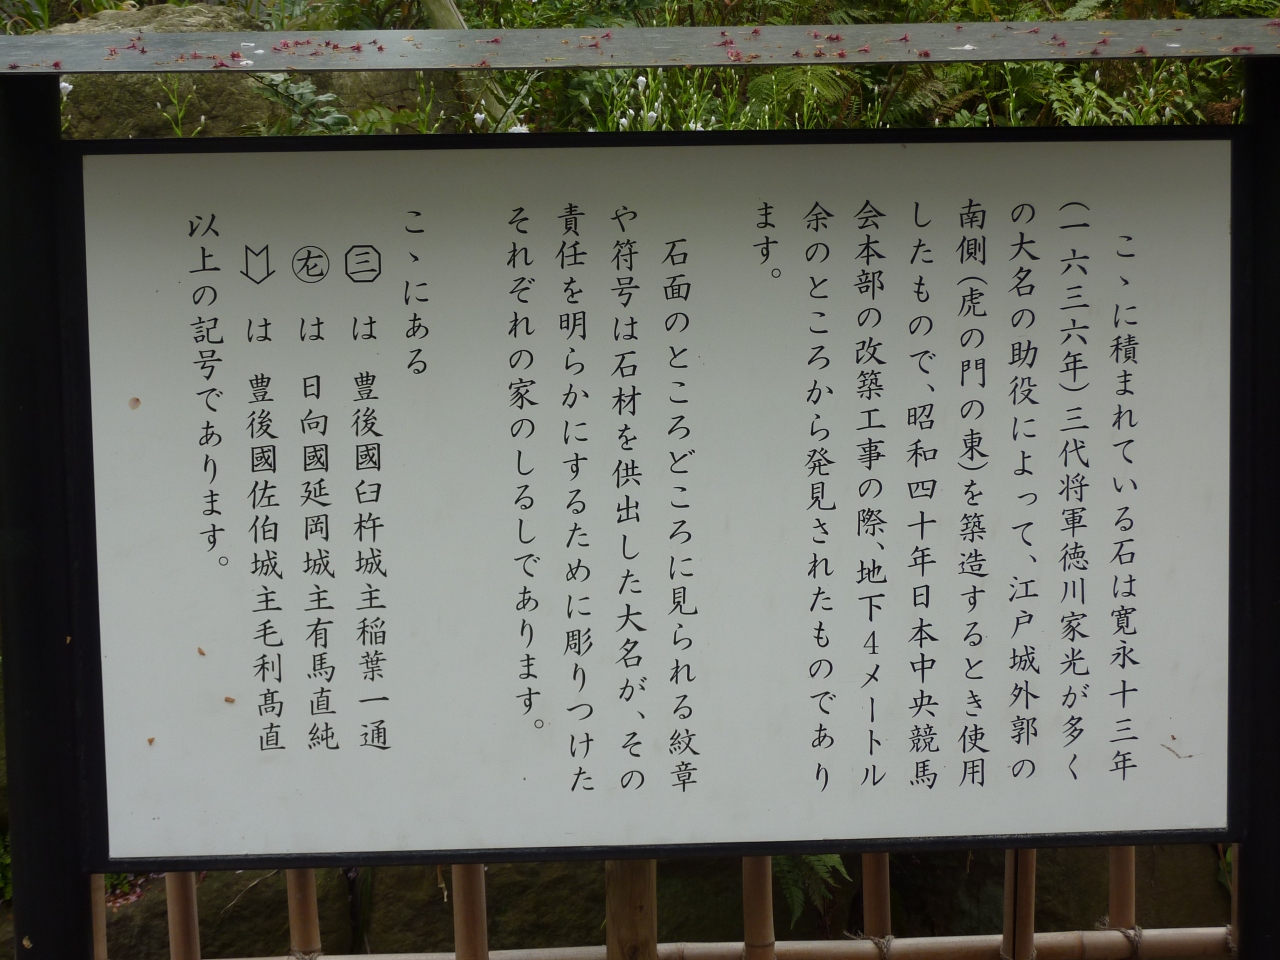 こゝに積まれている石は寛永十三年
(一六三六年)三代将軍徳川家光が多く
の大名の助役によって、江戸城外郭の
南側(虎の門の東)を築造するとき使用
したもので、昭和四十年日本中央競馬
会本部の改築工事の際、地下4メートル
余のところから発見されたものであり
ます。
石面のところどころに見られる紋章
や符号は石材を供出した大名が、その
責任を明らかにするために彫りつけた
それぞれの家のしるしであります。
こゝにある
三 は 豊後國臼杵城主稲葉一通
は 日向國延岡城主有馬直純
は 豊後國佐伯城主毛利髙直
以上の記号であります。